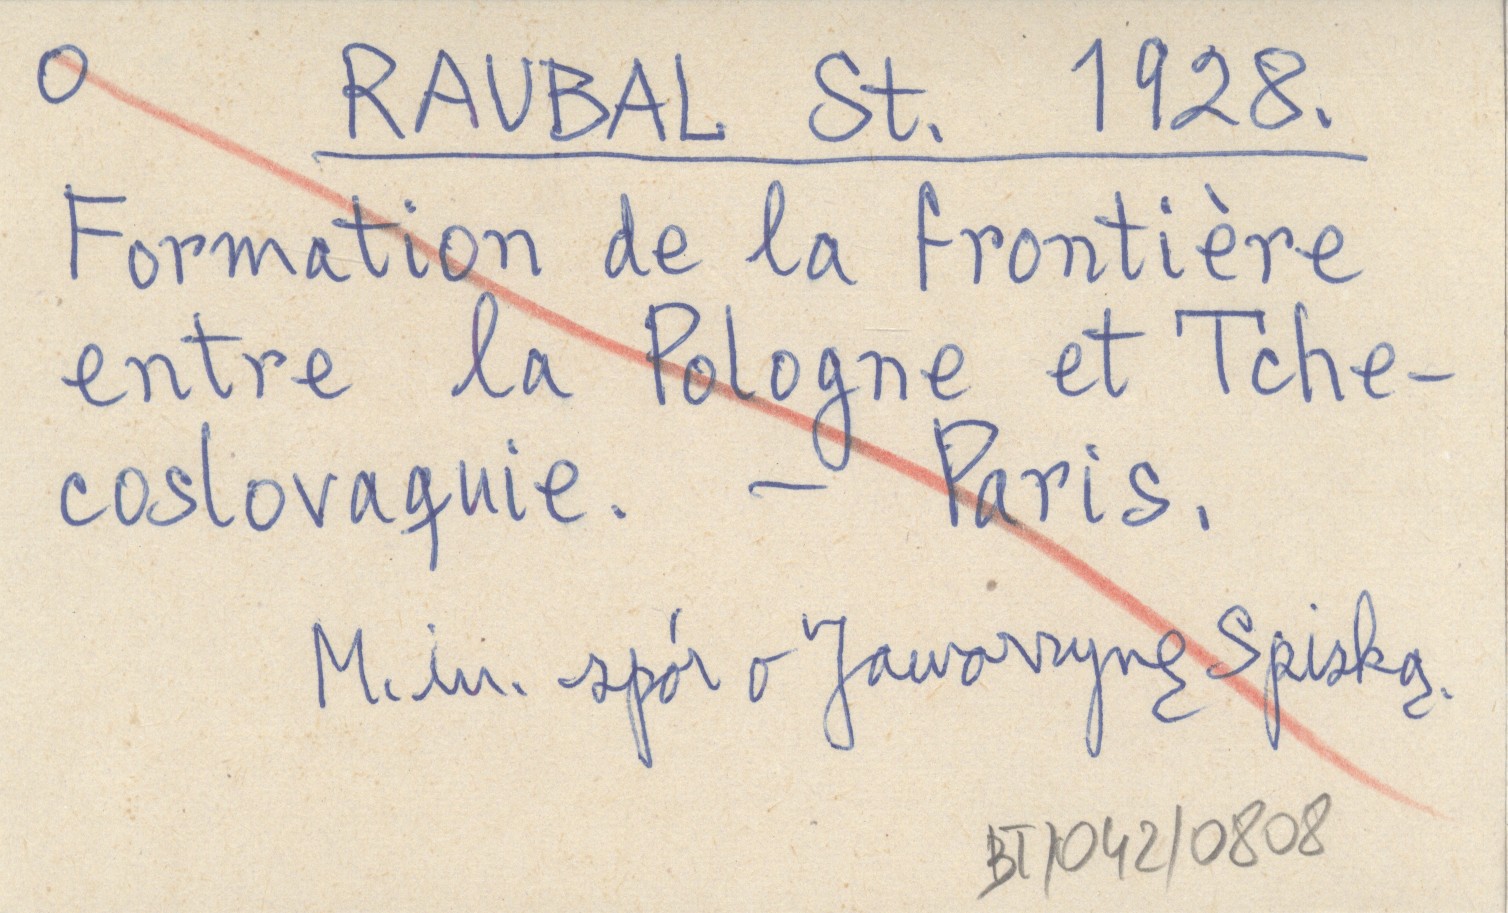 O RAUBAL St. 1928.
Formation de la frontière
entre la Pologne et Tche-
coslovaquie. - Paris.
M. in. spór o Jaworzynę Spiską.
BT/042/0808